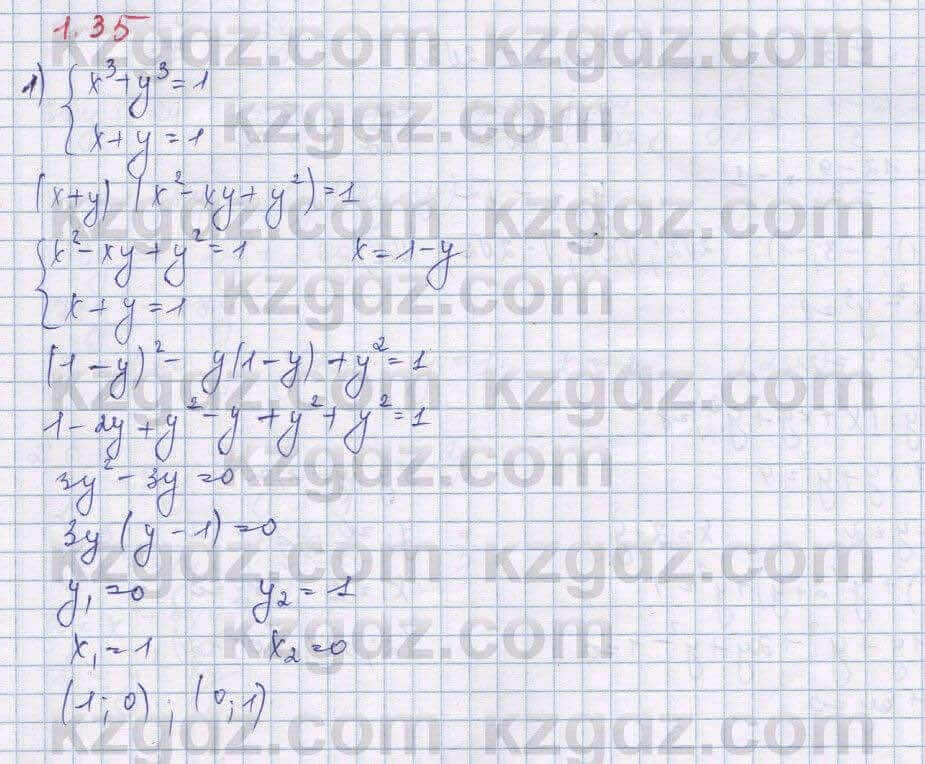 1.35
kzgdz.com kzgdz.com
1) { x³+y³=1
kzgdz.com
x+y=1
(x+y) (x²-xy+y²)=1
kzgdz.com kzgdz.com
{ x²-xy+y²=1 x=1-y
kzgdz.com
x+y=1
(1-y)²- y(1-y)+y²=1
kzgdz.com kzgdz.com
1-2y+y²-y+y²+y²=1
kzgdz.com
3y²-3y=0
3y(y-1)=0
kzgdz.com kzgdz.com
y₁=0 y₂=1
kzgdz.com
x₁=1 x₂=0
(1;0); (0;1)
kzgdz.com kzgdz.com